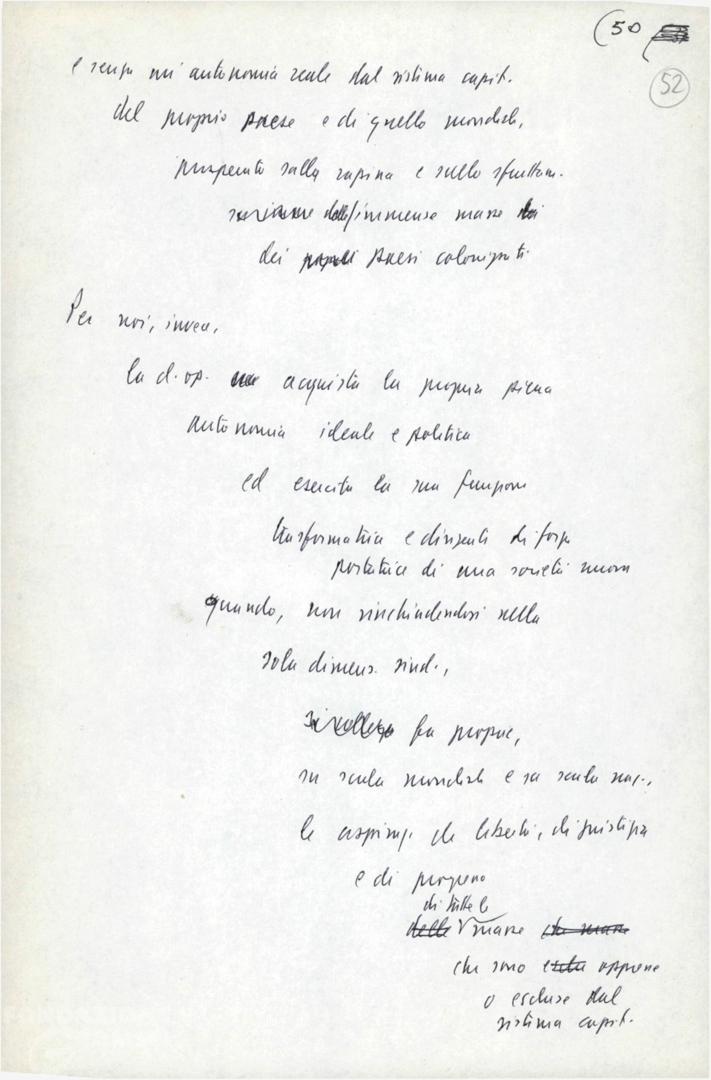 (50
52
e senza un'autonomia reale dal sistema capit.
del proprio paese e di quello mondiale,
prosperato sulla rapina e sullo sfruttam.
delle immense masse
dei popoli paesi colonizzati
Per noi, invece,
la cl. op. acquista la propria piena
autonomia ideale e politica
ed esercita la sua funzione
trasformatrice e dirigente di forza
portatrice di una società nuova
quando, non rinchiudendosi nella
sola dimens. sind.,
fa proprie,
su scala mondiale e su scala naz.,
le aspiraz. di libertà, di giustizia
e di progresso
di tutte le
delle masse che masse
che sono oppresse
o escluse dal
sistema capit.